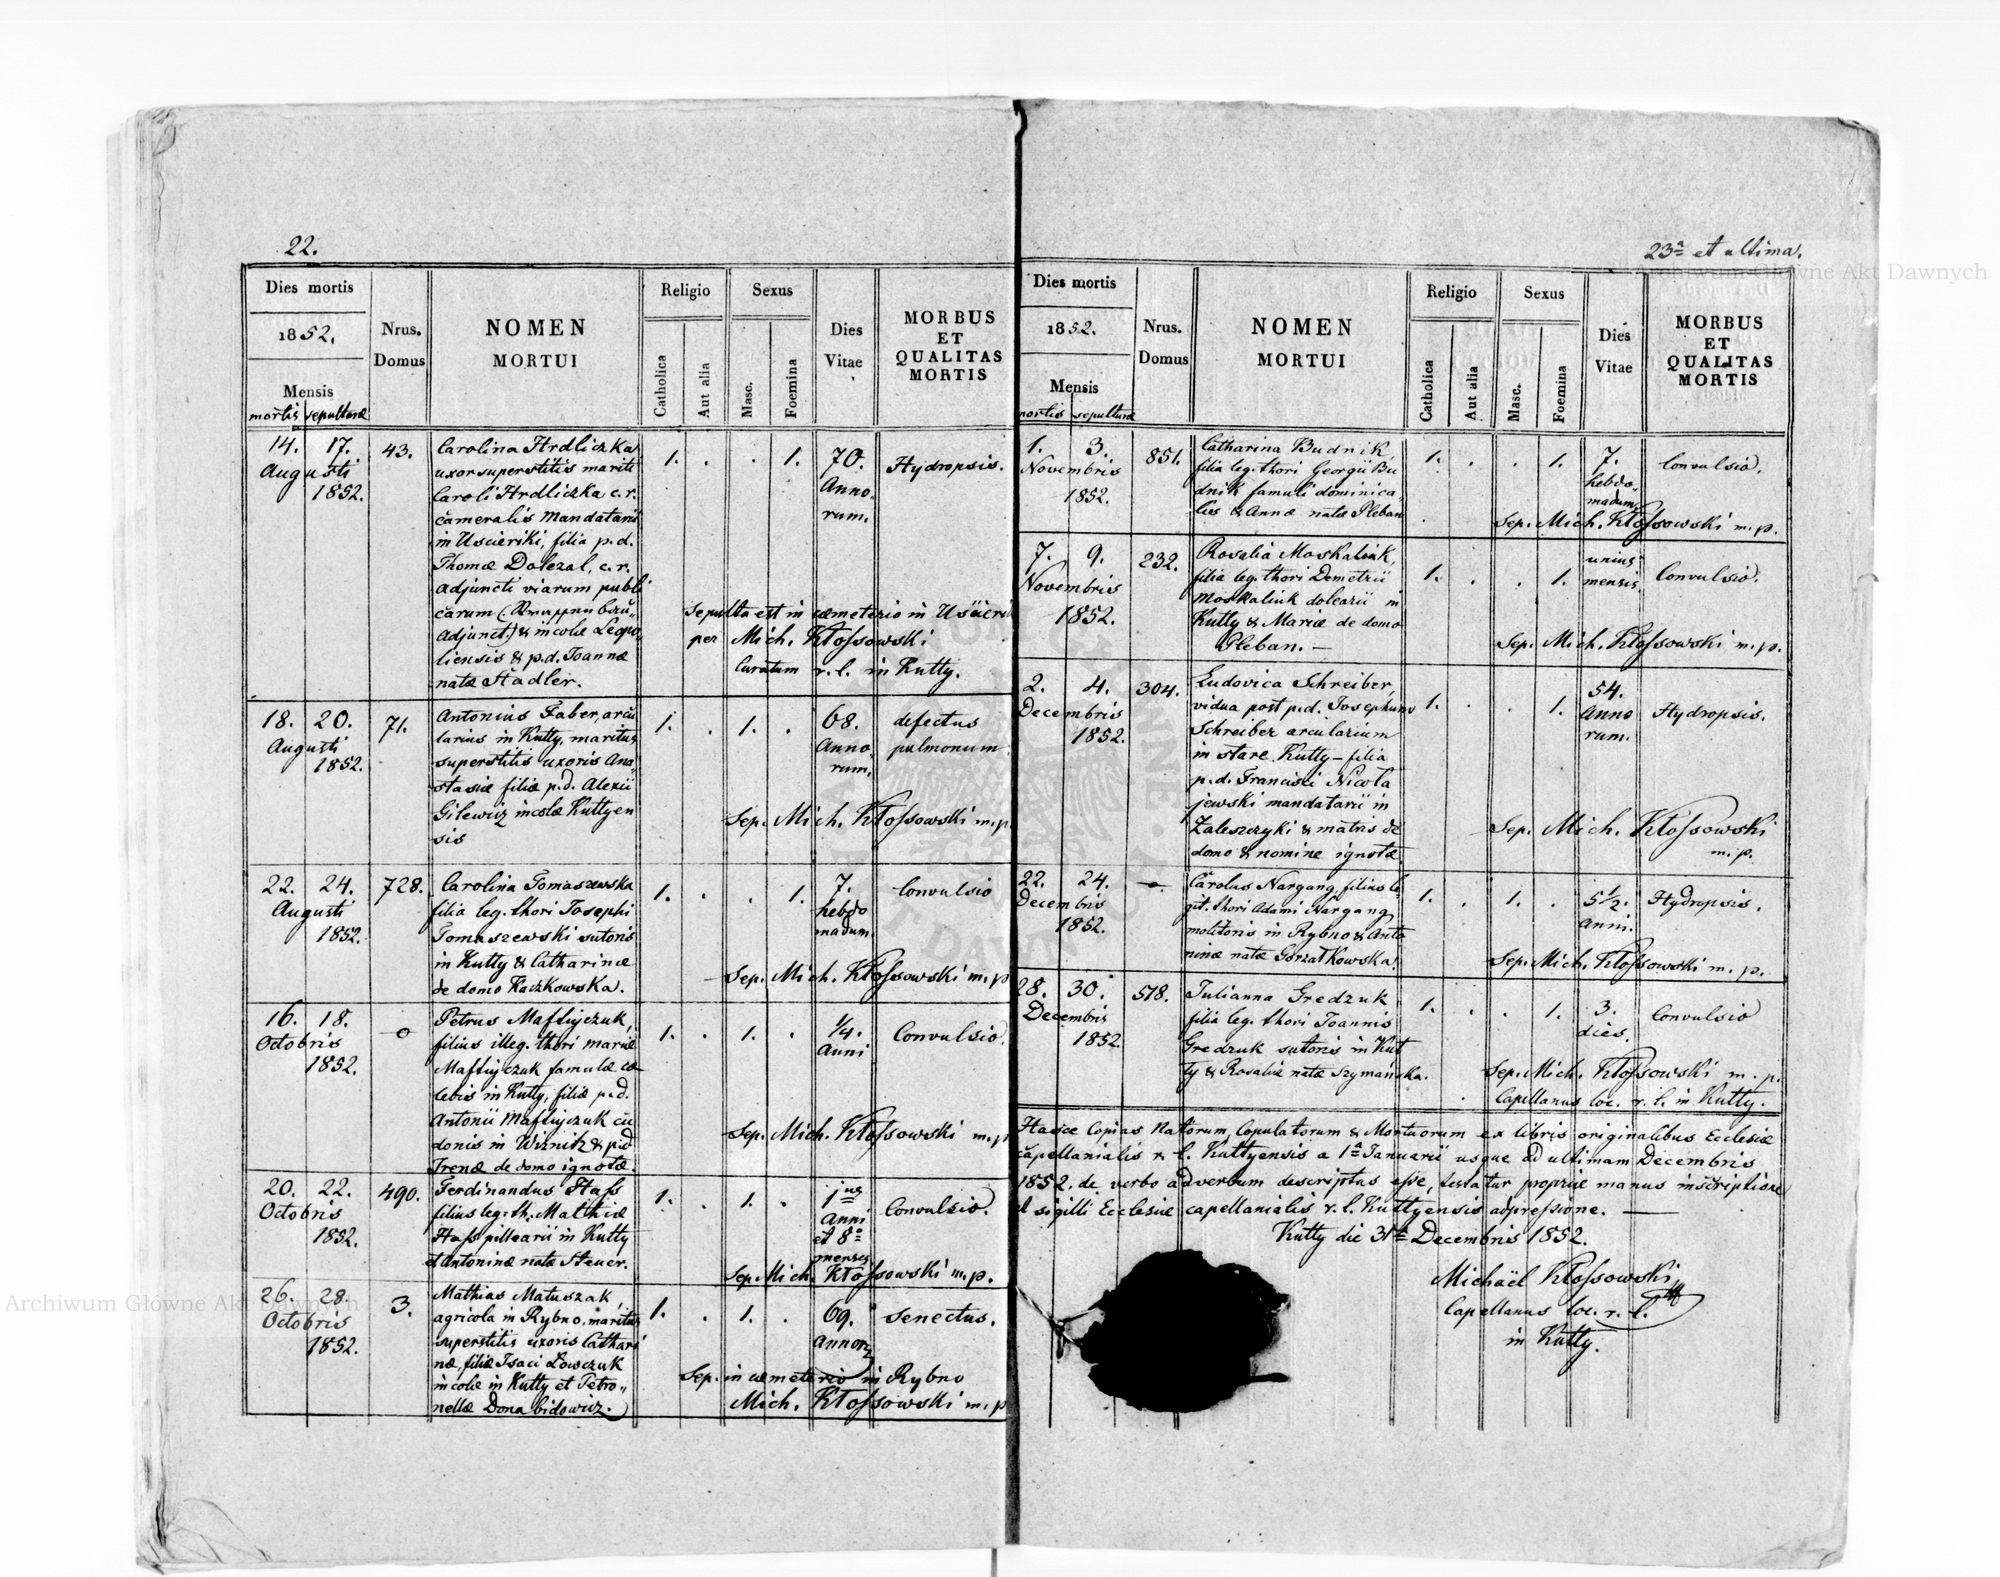 22.
Dies mortis
1852.
Mensis
mortis sepulturæ
Nrus.
Domus
NOMEN
MORTUI
Religio
Catholica
Aut alia
Sexus
Masc.
Foemina
Dies
Vitae
MORBUS
ET
QUALITAS
MORTIS
14. 17.
Augusti
1852.
43.
Carolina Hrdliczka
uxor superstitis mariti
Caroli Hrdliczka c. r.
cameralis Mandatarii
in Uscieriki, filia p. d.
Thomæ Dolezal, c. r.
adjuncti viarum publi
carum
adjunct.) & incolæ Leopo
liensis & p. d. Joannæ
natæ Stadler.
1. . . 1.
70.
Anno,
rum.
Hydropsis.
Sepulta est in cæmeterio in
per Mich. Kłossowski
Curatum r. l. in Kutty.
18. 20.
Augusti
1852.
71.
Antonius Faber, arcu
larius in Kutty, maritus
superstitis uxoris Ana
stasiæ filiæ p. d. Alexii
Gilewicz incolæ Kuttyen
sis
1. . 1. .
68.
Anno,
rum.
defectus
pulmonum
Sep. Mich. Kłossowski m. p.
22. 24.
Augusti
1852.
728.
Carolina Tomaszewska
filia leg. thori Josephi
Tomaszewski sutoris
in Kutty & Catharinæ
de domo Kaczkowska.
1. . . 1.
7.
hebdo
madum
Convulsio
Sep. Mich. Kłossowski m. p
16. 18.
Octobris
1852.
o
Petrus Maftijczuk,
filius illeg. thori Mariæ
Maftijczuk famulæ cæ
lebis in Kutty, filiæ p. d.
Antonii Maftijczuk cu
donis in Wiznitz & p. d.
Irenæ de domo ignotæ.
1. . 1. .
1/4.
Anni
Convulsio.
Sep. Mich. Kłossowski m. p
20. 22.
Octobris
1852.
490.
Ferdinandus Hass
filius leg. th. Mathiæ
Hass pillearii in Kutty
et Antoninæ natæ Steuer.
1. . 1. .
1us
Anni
et 8o
menses
Convulsio.
Sep. Mich. Kłossowski m. p.
26. 28.
Octobris
1852.
3.
Mathias Matuszak,
agricola in Rybno, maritus
superstitis uxoris Cathari
næ, filiæ Isaci Lowczuk
incolæ in Kutty et Petro,,
nellæ Donabidowicz.
1. . 1. .
69.
Annor
Senectus.
Sep. in cæmeterio in Rybno
Mich. Kłossowski m. p
23a et ultima.
Dies mortis
1852.
Mensis
mortis sepulturæ
Nrus.
Domus
NOMEN
MORTUI
Religio
Catholica
Aut alia
Sexus
Masc.
Foemina
Dies
Vitae
MORBUS
ET
QUALITAS
MORTIS
1. 3.
Novembris
1852.
851.
Catharina Budnik,
filia leg. thori Georgii Bu
dnik famuli dominica,
lis & Annæ natæ Pleban
1. . . 1.
7.
hebdo,
madum,
Convulsio.
Sep. Mich. Kłossowski m. p.
7. 9.
Novembris
1852.
232.
Rosalia Moskaliuk,
filia leg. thori Demetrii
Moskaliuk dolearii in
Kutty & Mariæ de domo
Pleban. —
1. . . 1.
unius
mensis.
Convulsio.
Sep. Mich. Kłossowski m. p.
2. 4.
Decembris
1852.
304.
Ludovica Schreiber,
vidua post p. d. Josephum
Schreiber arcularium
in stare Kutty – filia
p. d. Francisci Nicola
jewski mandatarii in
Zaleszczyki & matris de
domo & nomine ignotæ
1. . . 1.
54.
Anno
rum.
Hydropsis.
Sep. Mich. Kłossowski
m. p.
22. 24.
Decembris
1852.
o
Carolus Nargang, filius le
git. thori Adami Nargang
molitoris in Rybno & Anto
ninæ natæ Gorzałkowska.
1. . 1. .
5 1/2.
Anni.
Hydropsis.
Sep. Mich. Kłossowski m. p.
28. 30.
Decembris
1852.
518.
Julianna Gredzuk
filia leg. thori Joannis
Gredzuk sutoris in Kut
ty & Rosaliæ natæ Szymańska.
1. . . 1.
3.
dies.
Convulsio
Sep. Mich. Kłossowski m. p.
Capellanus loc. r. l. in Kutty.
Hasce Copias Natorum, Copulatorum & Mortuorum ex libris originalibus Ecclesiæ
capellanialis r. l. Kuttyensis a 1a Januarii usque ad ultimam Decembris
1852. de verbo ad verbum descriptas esse, testatur propriæ manus inscriptione
& sigilli Ecclesiæ capellanialis r. l. Kuttyensis adpressione. —
Kutty die 31a Decembris 1852.
Michaël Kłossowski
Capellanus loc. r. l.
in Kutty.
Archiwum Główne Akt Dawnych
Archiwum Główne Akt Dawnych